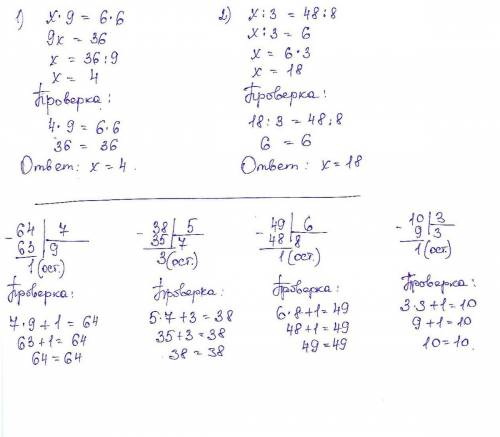 1) x·9 = 6·6
9x = 36
x = 36:9
x = 4
Проверка:
4·9 = 6·6
36 = 36
Ответ: x = 4.
2) x:3 = 48:8
x:3 = 6
x = 6·3
x = 18
Проверка:
18:3 = 48:8
6 = 6
Ответ: x = 18
- 64 | 7
63 | 9
1 (ост.)
Проверка:
7·9+1 = 64
63+1 = 64
64 = 64
- 38 | 5
35 | 7
3 (ост.)
Проверка:
5·7+3 = 38
35+3 = 38
38 = 38
- 49 | 6
48 | 8
1 (ост.)
Проверка:
6·8+1 = 49
48+1 = 49
49 = 49
- 10 | 3
9 | 3
1 (ост.)
Проверка:
3·3+1 = 10
9+1 = 10
10 = 10.